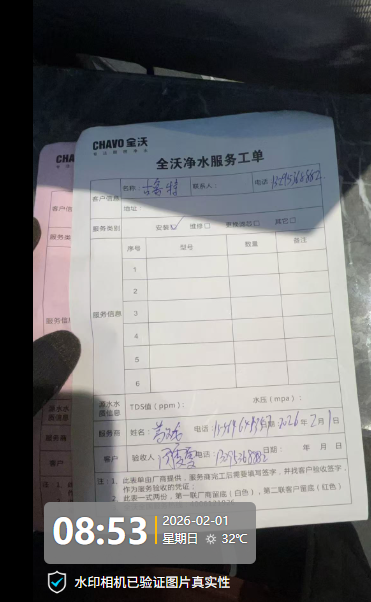 CHAVO 全沃
CHA
全沃净水服务工单
客户信息
名称:
联系人:
电话:
地址
客户信
服务类别
安装☑
维修☐
更换滤芯☐
其它☐
服务类
服务信息
序号
型号
数量
备注
1
2
3
4
5
6
服务信
源水水质信息
TDS值(ppm):
水压(mpa):
源水水质信息
服务商
姓名:
电话:
日期: 2026年2月1日
服务商
客户
验收人:
电话:
日期:
年 月 日
客户
注: 1、此表单由厂商提供,服务商完工后需要填写签字,并找客户验收签字,
作为服务验收的凭证;
2、此表一式两份,第一联厂商留底(白色),第二联客户留底(红色)
注
08:53
2026-02-01
星期日 32℃
水印相机已验证图片真实性